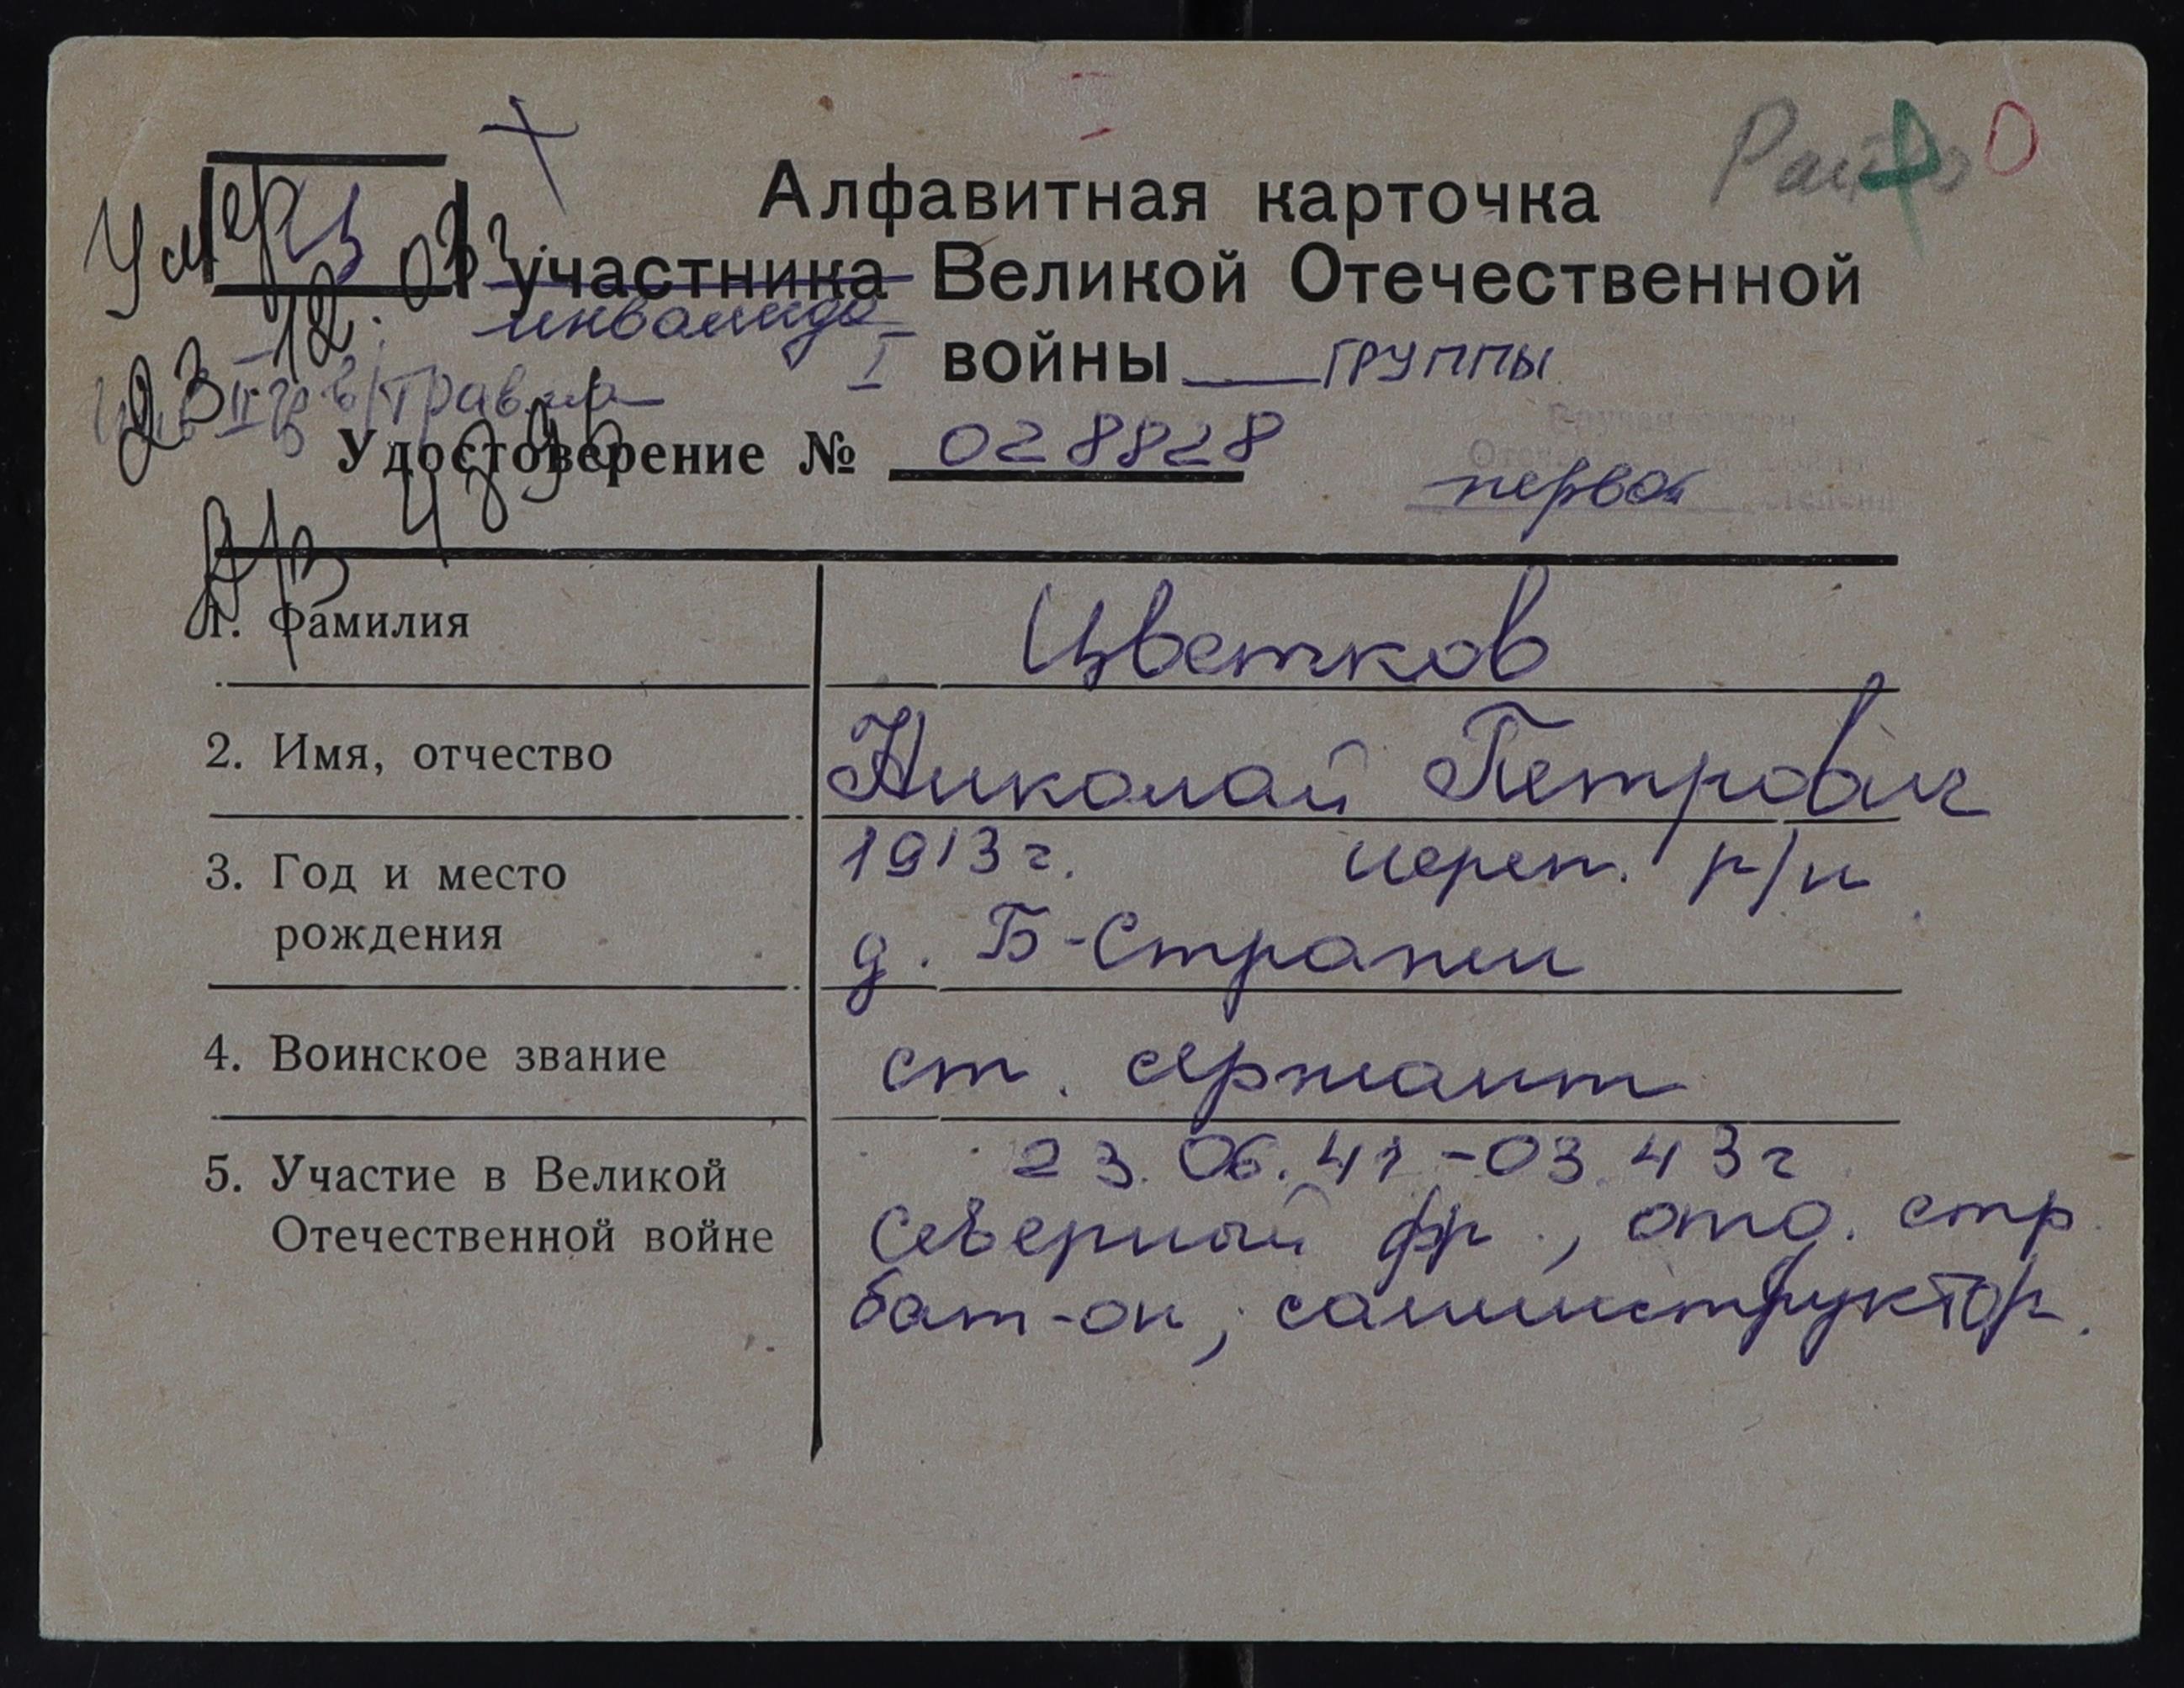 Райо О
Алфавитная карточка
Умер Ц
участника Великой Отечественной
12. 03
инвалида
I войны группы
23
II гр в/травма
Удостоверение № 028828
489б
первой степени
1. Фамилия Цветков
2. Имя, отчество Николай Петрович
3. Год и место 1913 г. череп. р/н
рождения д. Б-Страпи
4. Воинское звание ст. сержант
5. Участие в Великой 23.06.41-03.43 г
Отечественной войне Северный фр., отд. стр.
бат-он, санинструктор.